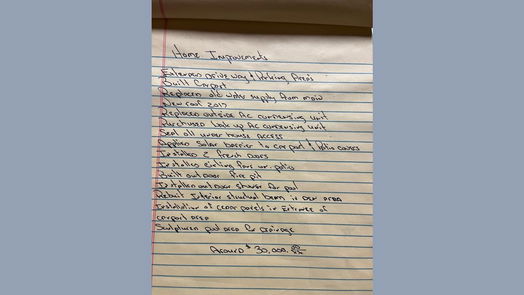 Home Improvements
Driveway & Parking Areas
Built Carport
Replaced old water supply from main
New roof 2017
Replaced outside AC condensing unit
Purchased back up AC condensing unit
Seal all under house access
Applied Solar barrier to carport & patio covers
Installed 2 french doors
Installed ceiling fans on patios
Built outdoor fire pit
Install outdoor shower for pool
Rebuilt Interior structual beam in den area
Installation of cedar panels in Entrance of
carport area
Sculptured pool area for Drainage
Around $30,000.